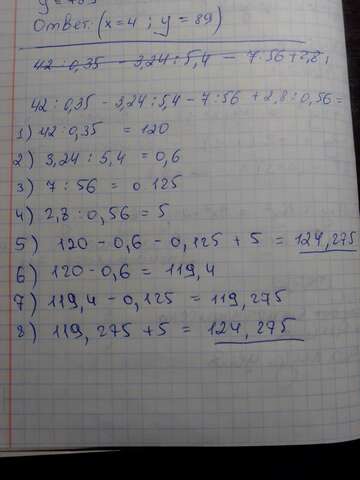 Ответ: (x = 4 ; y = 89)
42 : 0,35 - 3,24 : 5,4 - 7 : 56 + 2,8 ;
42 : 0,35 - 3,24 : 5,4 - 7 : 56 + 2,8 : 0,56 =
1) 42 : 0,35 = 120
2) 3,24 : 5,4 = 0,6
3) 7 : 56 = 0 125
4) 2,8 : 0,56 = 5
5) 120 - 0,6 - 0,125 + 5 = 124,275
6) 120 - 0,6 = 119,4
7) 119,4 - 0,125 = 119,275
8) 119,275 + 5 = 124,275